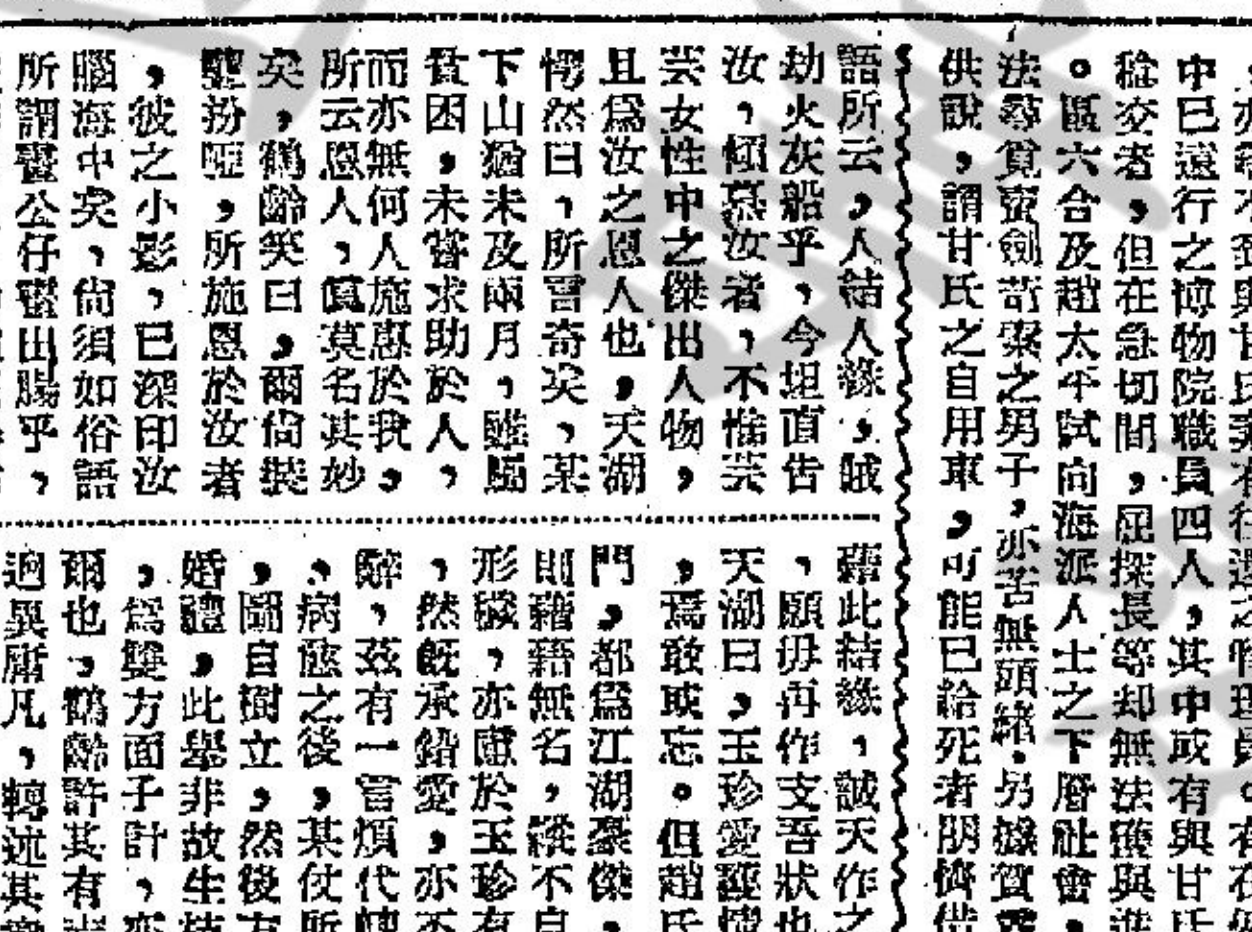 中已遠行之博物院職員四人，其中或有與甘氏
稔交者，但在急切間，屈探長等却無法獲與進
。區六合及趙太平試向海派人士之下層社會，
法尋覓賣劍苛索之男子，亦苦無頭緒。另據賀
供說，謂甘氏之自用車，可能已給死者朋儕借
語所云，人結人緣，賊
劫火灰船乎，今坦直告
汝，傾慕汝者，不惟芸
芸女性中之傑出人物，
且爲汝之恩人也，天湖
愕然曰，所言奇矣，某
下山猶未及兩月，雖屬
貧困，未嘗求助於人，
而亦無何人施惠於我，
所云恩人，眞莫名其妙
矣，鶴齡笑曰，爾尙裝
聾扮啞，所施恩於汝者
，彼之小影，已深印汝
腦海中矣，尙須如俗語
所謂畫公仔畫出腸乎，
藉此結緣，誠天作之
，願毋再作支吾狀也
天湖曰，玉珍愛護情
，焉敢或忘。但趙氏
門，都爲江湖豪傑，
則藉藉無名，縱不自
形穢，亦慮於玉珍有
，然旣承錯愛，亦不
辭，茲有一言煩代轉
，病愈之後，某仗所
，圖自樹立，然後方
婚禮，此舉非故生枝
，爲雙方面子計，亦
爾也，鶴齡許其有志
迥異庸凡，轉述其意